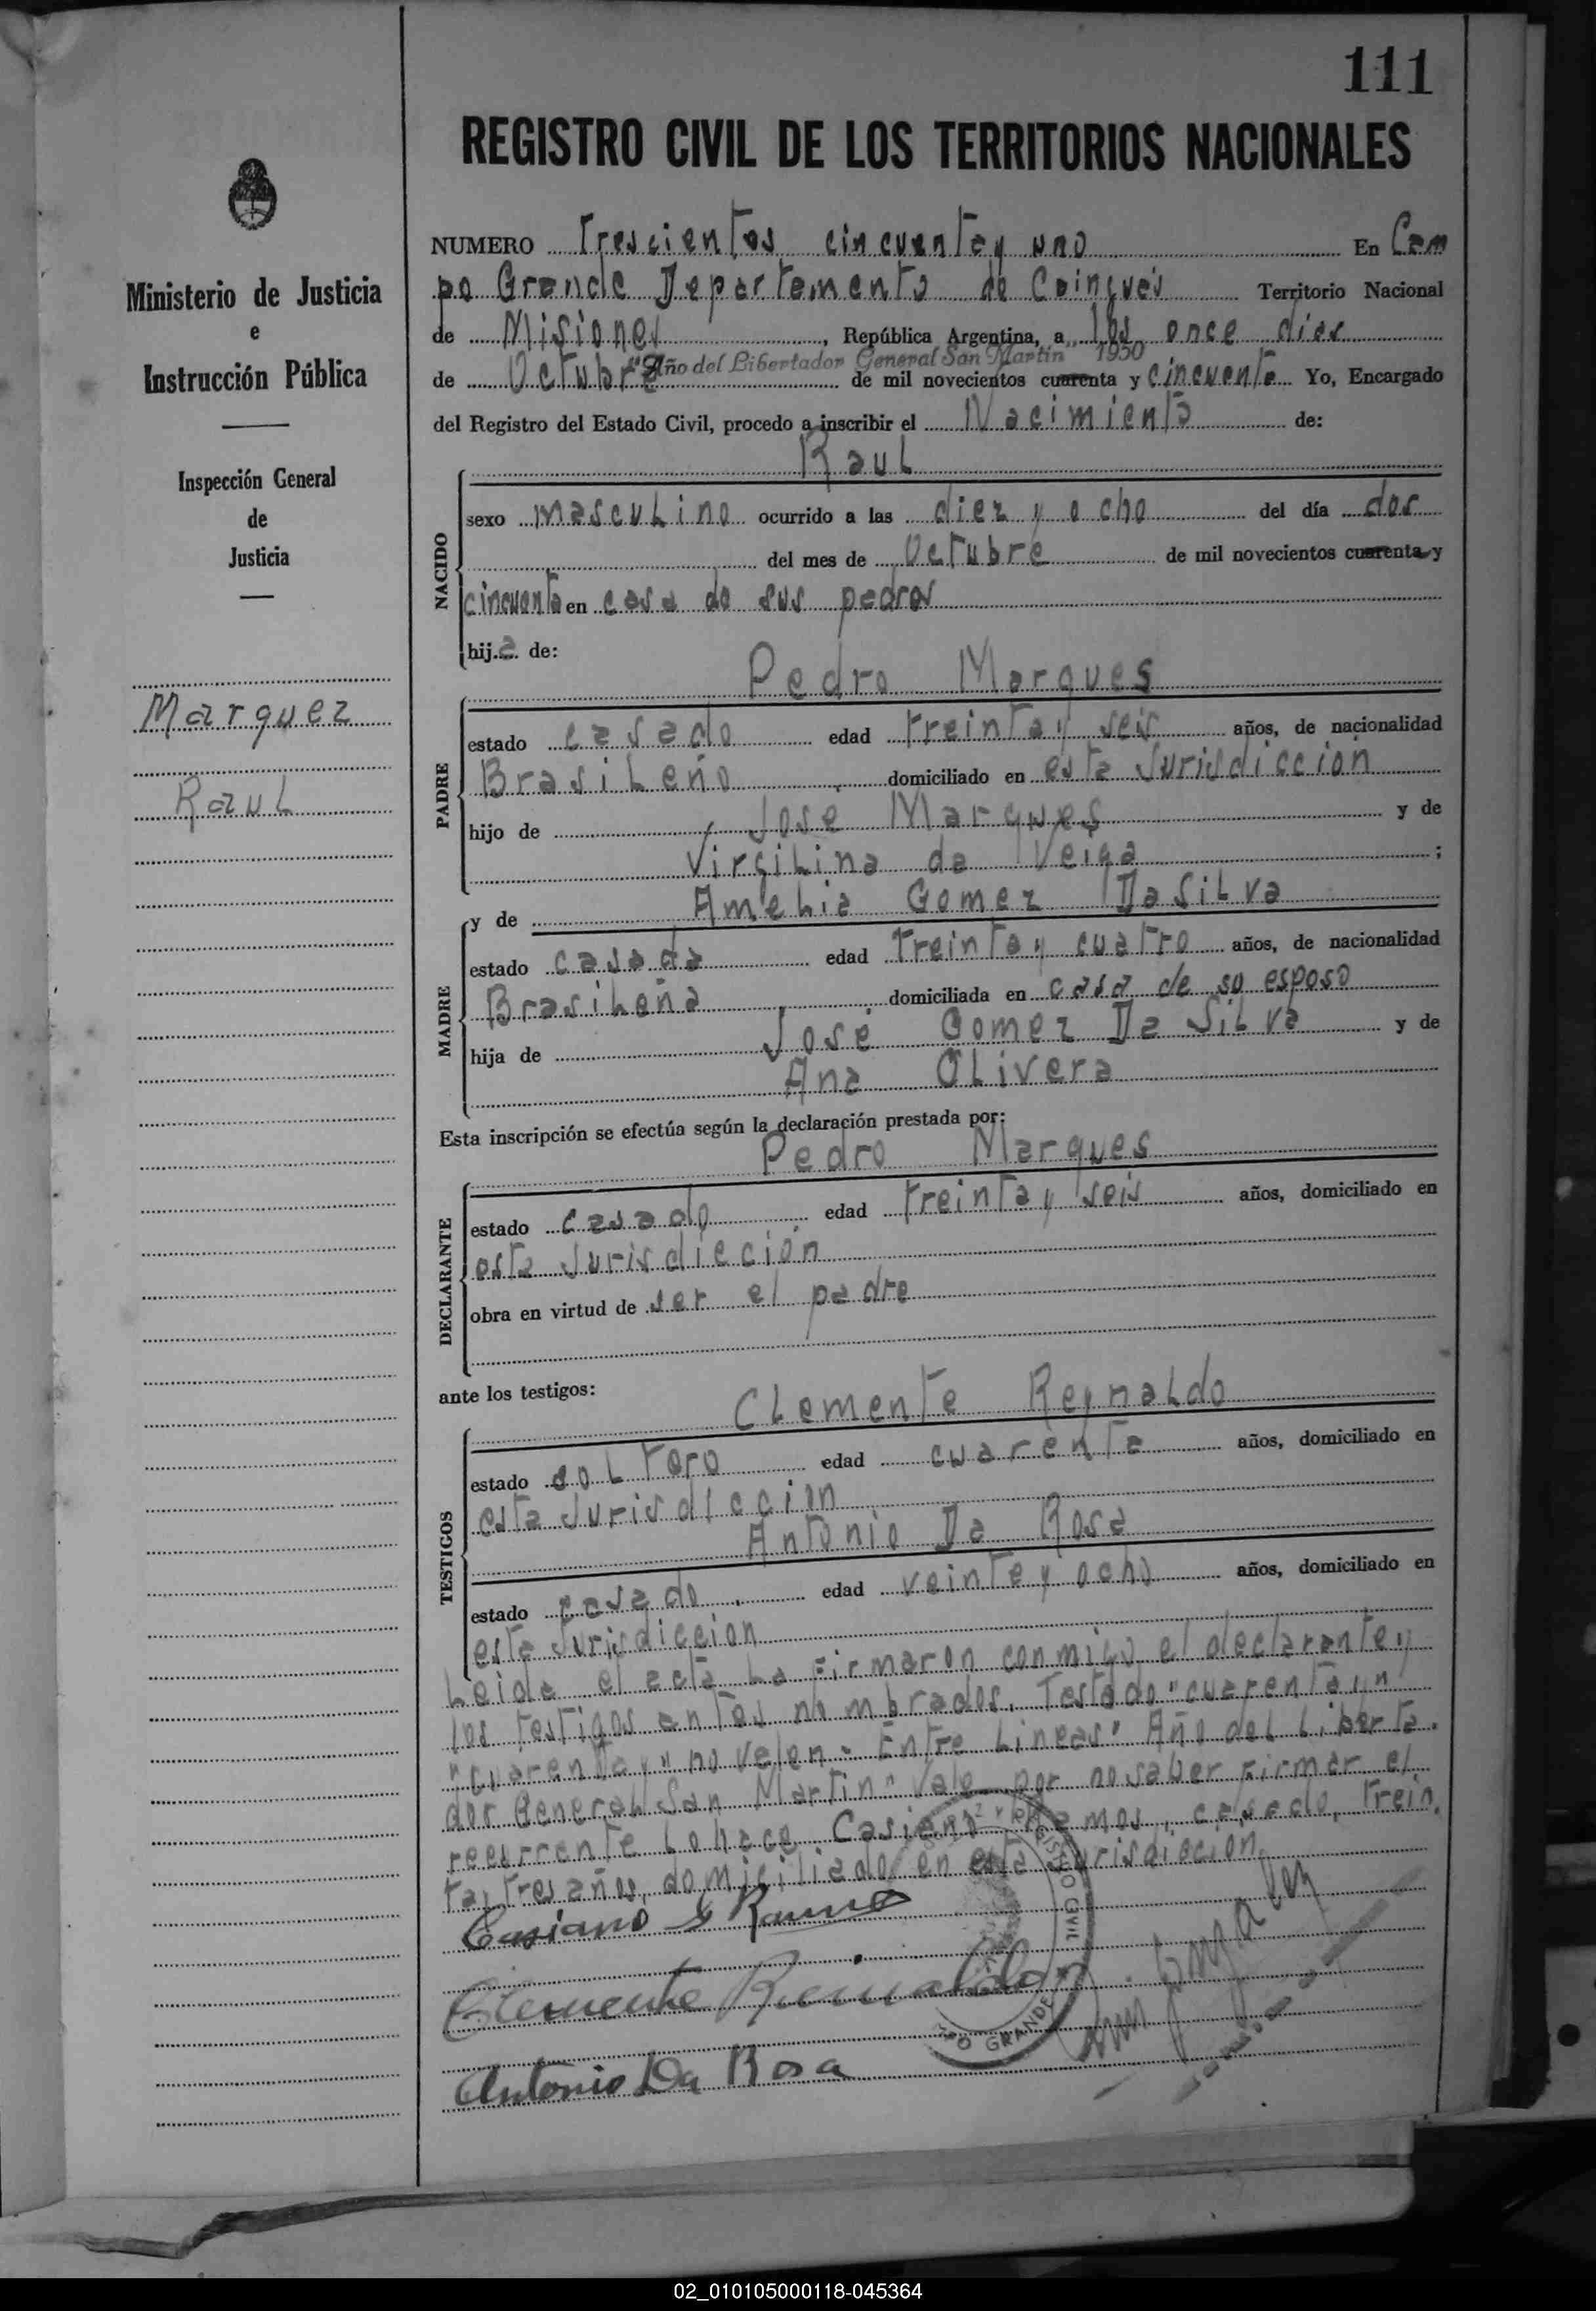 111
REGISTRO CIVIL DE LOS TERRITORIOS NACIONALES
Ministerio de Justicia
e
Instrucción Pública
Inspección General
de
Justicia
Marquez
Raul
NUMERO Trescientos cincuenta y uno En Cam
po Grande Departamento de Cainguás Territorio Nacional
de Misiones, República Argentina, a los once dias
"Año del Libertador General San Martín" 1950
de Octubre de mil novecientos cuarenta y cincuenta Yo, Encargado
del Registro del Estado Civil, procedo a inscribir el Nacimiento de:
Raul
NACIDO
sexo masculino ocurrido a las diez y ocho del día dos
del mes de Octubre de mil novecientos cuarenta y
cincuenta en casa de sus padres
hij de:
Pedro Marques
PADRE
estado casado edad treinta y seis años, de nacionalidad
Brasileño domiciliado en esta Jurisdiccion
hijo de José Marques y de
Virgilina da Veiga ;
y de Amelia Gomez Da Silva
MADRE
estado casada edad treinta y cuatro años, de nacionalidad
Brasileña domiciliada en casa de su esposo
hija de José Gomez Da Silva y de
Ana Olivera
Esta inscripción se efectúa según la declaración prestada por:
Pedro Marques
DECLARANTE
estado casado edad treinta y seis años, domiciliado en
esta Jurisdicción
obra en virtud de ser el padre
ante los testigos:
Clemente Reynaldo
TESTIGOS
estado soltero edad cuarenta años, domiciliado en
esta Jurisdiccion
Antonio Da Rosa
estado casado edad veinte y ocho años, domiciliado en
esta Jurisdiccion
Leida el acta la firmaron conmigo el declarante y
los testigos antes nombrados. Testado "cuarenta y"
"cuarenta y" no valen - Entre Lineas "Año del Liberta
dor General San Martin" Vale por no saber firmar el
recurrente lo hace Casiano Ramos, casado, trein
ta y tres años, domiciliado en esta Jurisdiccion
Casiano Ramos
Clemente Reinaldo
Antonio Da Rosa
REGISTRO CIVIL
PO GRANDE
02_010105000118-045364